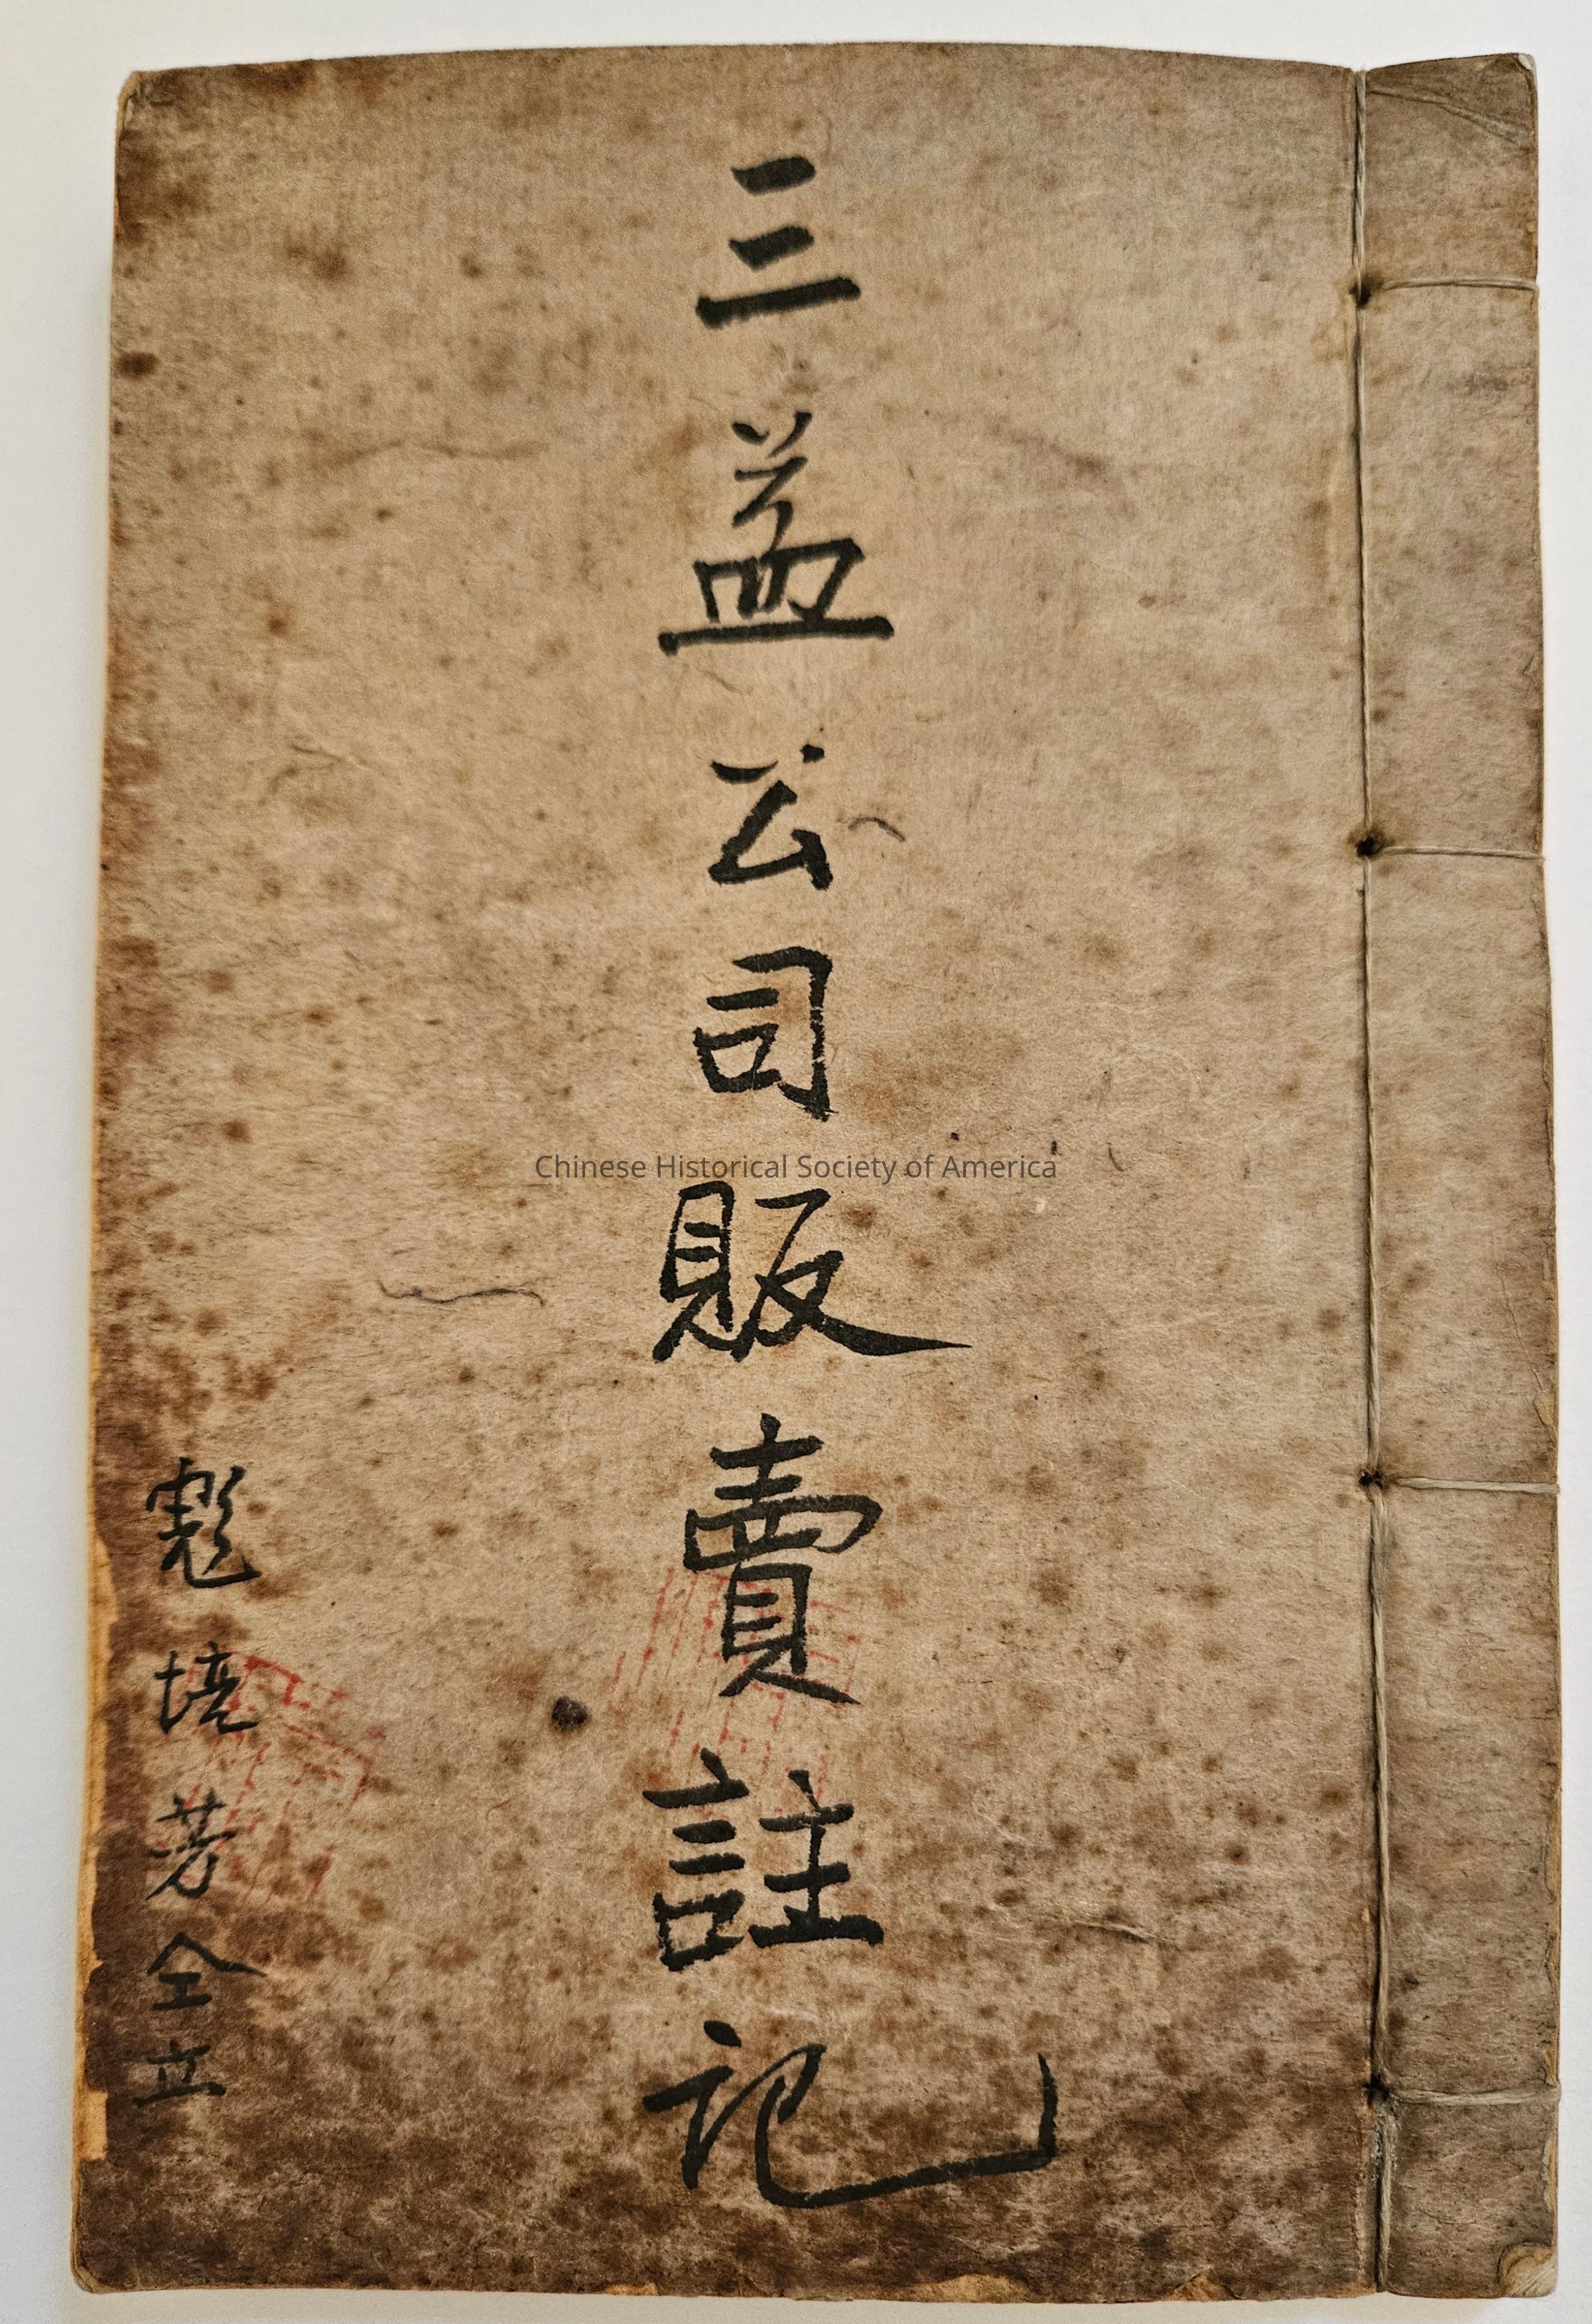 三益公司販賣註記
彪境芳仝立
Chinese Historical Society of America